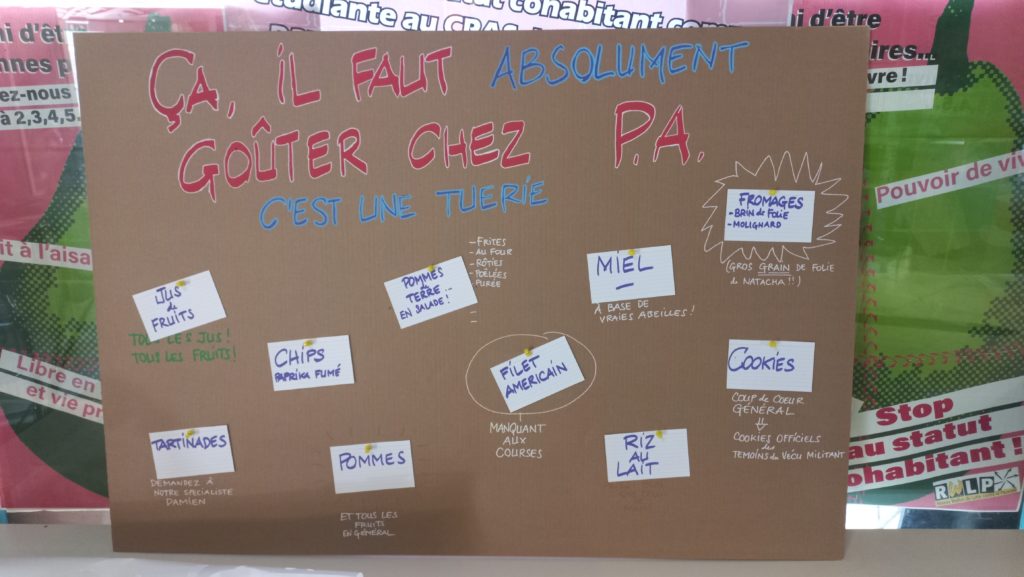 étudiante au CPAS
cohabitant
ÇA, IL FAUT ABSOLUMENT
GOÛTER CHEZ P.A.
C'EST UNE TUERIE
FROMAGES
- BRIN de FOLIE
- MOLIGNARD
(GROS GRAIN DE FOLIE
de NATACHA !!)
JUS
de
FRUITS
TOUS LES JUS !
TOUS LES FRUITS !
POMMES
de
TERRE...
EN SALADE !
- FRITES
- AU FOUR
- RÔTIES
- POÊLÉES
- PURÉE
MIEL
À BASE DE
VRAIES ABEILLES !
CHIPS
PAPRIKA FUMÉ
FILET
AMERICAIN
MANQUANT
AUX
COURSES
COOKIES
COUP de COEUR
GÉNÉRAL
COOKIES OFFICIELS
des
TEMOINS du VECU MILITANT
TARTINADES
DEMANDEZ À
NOTRE SPECIALISTE
DAMIEN
POMMES
ET TOUS LES
FRUITS
EN GÉNÉRAL
RIZ
AU
LAIT
ni d'êtr
nnes p
ez-nous
à 2,3,4,5.
it à l'aisa
Libre en
et vie pr
ni d'être
ires...
vre !
Pouvoir de viv
Stop
au statut
cohabitant !
RWLP